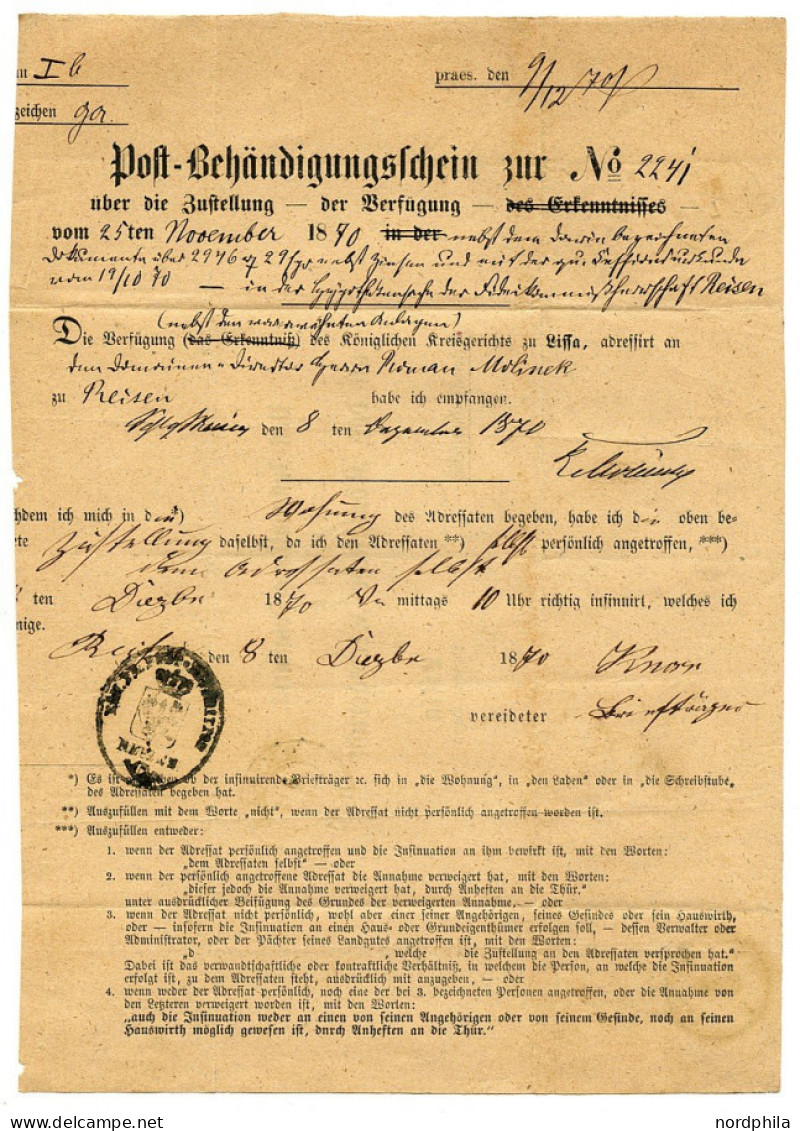 I b praes. den 9/12 70
zeichen ga.
Post-Behändigungsschein zur No 2241
über die Zustellung — der Verfügung — des Erkenntnisses —
vom 25ten November 1870 in der nebst dem darin bezeichneten
Dokumente über 2946 29 nebst Zinsen und mit der
vom 19/10 70 — in der Hypothekensache der Fideikommißherrschaft Reisen
(nebst den vorerwähnten Anlagen)
Die Verfügung (das Erkenntniß) des Königlichen Kreisgerichts zu Lissa, adressirt an
den Domainen-Director Herrn Roman Molinek
zu Reisen habe ich empfangen.
den 8 ten Dezember 1870
chdem ich mich in die *) Wohung des Adressaten begeben, habe ich die oben be-
ete Zustellung daselbst, da ich den Adressaten **) selbst persönlich angetroffen, ***)
dem Adressaten selbst
8 ten Dezbr 1870 Vor mittags 10 Uhr richtig insinuirt, welches ich
inige.
den 8 ten Dezbr 1870 Knorr
vereideter Briefträger
*) Es ist anzugeben ob der insinuirende Briefträger ꝛc. sich in „die Wohnung", in „den Laden" oder in „die Schreibstube„
des Adressaten begeben hat.
**) Auszufüllen mit dem Worte „nicht", wenn der Adressat nicht persönlich angetroffen worden ist.
***) Auszufüllen entweder:
1. wenn der Adressat persönlich angetroffen und die Insinuation an ihm bewirkt ist, mit den Worten:
„dem Adressaten selbst" — oder
2. wenn der persönlich angetroffene Adressat die Annahme verweigert hat, mit den Worten:
„dieser jedoch die Annahme verweigert hat, durch Anheften an die Thür."
unter ausdrücklicher Beifügung des Grundes der verweigerten Annahme, — oder
3. wenn der Adressat nicht persönlich, wohl aber einer seiner Angehörigen, seines Gesindes oder sein Hauswirth,
oder — insofern die Insinuation an einen Haus- oder Grundeigenthümer erfolgen soll, — dessen Verwalter oder
Administrator, oder der Pächter seines Landgutes angetroffen ist, mit den Worten:
„d , welche die Zustellung an den Adressaten versprochen hat."
Dabei ist das verwandtschaftliche oder kontraktliche Verhältniß, in welchem die Person, an welche die Insinuation
erfolgt ist, zu dem Adressaten steht, ausdrücklich mit anzugeben, — oder
4. wenn weder der Adressat persönlich, noch eine der bei 3. bezeichneten Personen angetroffen, oder die Annahme von
den Letzteren verweigert worden ist, mit den Worten:
„auch die Insinuation weder an einen von seinen Angehörigen oder von seinem Gesinde, noch an seinen
Hauswirth möglich gewesen ist, durch Anheften an die Thür."
nordphila.com